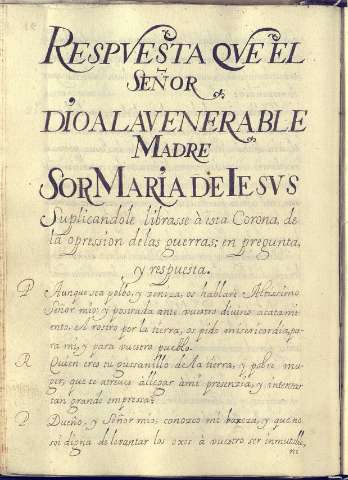 RESPVESTA QVE EL
SEÑOR
DIO A LA VENERABLE
MADRE
SOR MARIA DE IESVS
Suplicandole librasse à esta Corona, de
la opression de las guerras; en pregunta,
y respuesta.
P Aunque sea polbo, y zeniza, os hablarè Altissimo
Señor mio; y postrada ante vuestro divino acatami-
ento, el rostro por la tierra, os pido misericordia, pa
ra mi, y para vuestro pueblo.
R Quien eres tu gusanillo de la tierra, y pobre mu-
ger, que te atreues allegar àmi presenzia, y intentar
tan grande empressa?
P Dueño, y Señor mio; conozco mi baxeza, y que no
soi digna de levantar los oxos à vuestro ser inmutable,
ni